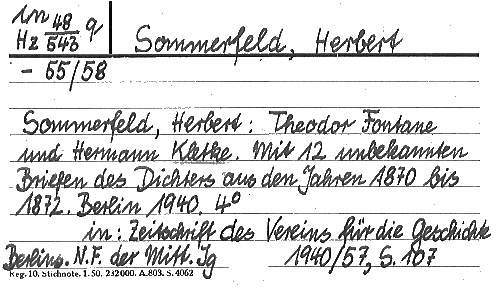 in 48 q
Hz 543
- 55/58
Sommerfeld, Herbert
Sommerfeld, Herbert: Theodor Fontane
und Hermann Kletke. Mit 12 unbekannten
Briefen des Dichters aus den Jahren 1870 bis
1872. Berlin 1940. 4°
in: Zeitschrift des Vereins für die Geschichte
Berlins. N.F. der Mitt. Jg 1940/57, S. 107
Reg. 10. Stichnote. 1. 50. 232000. A.803. S. 4062